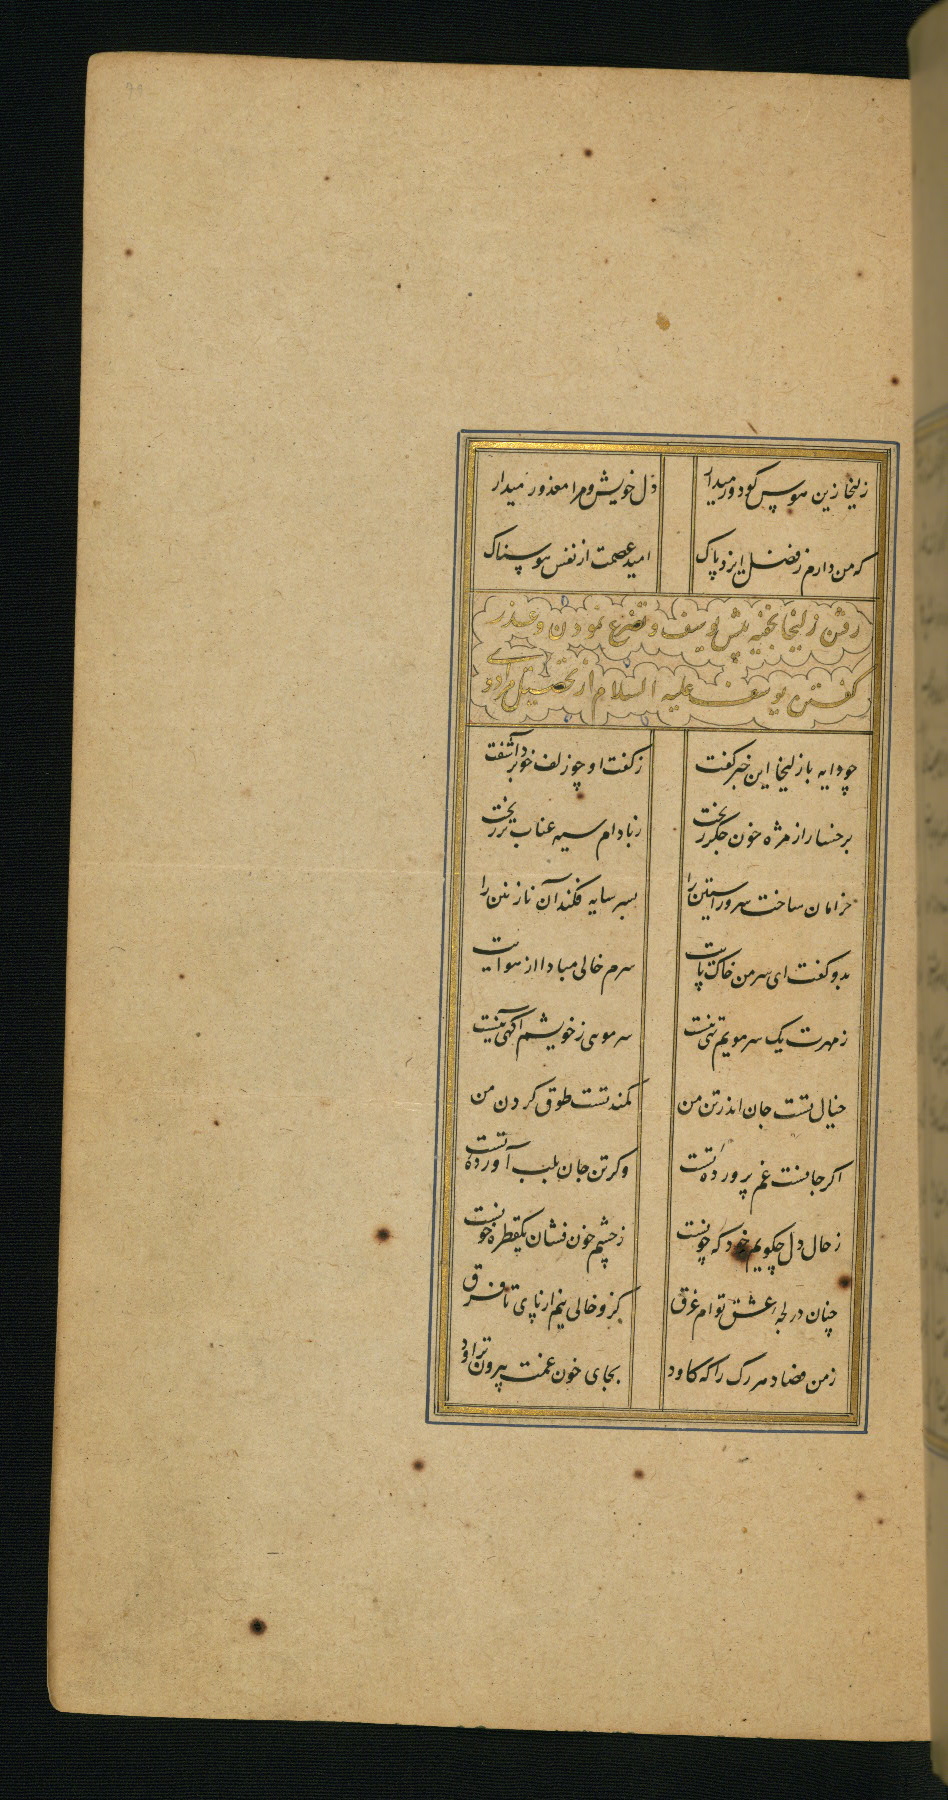 زلیخا زین هوس گو دور میدار دل خویش و مرا معذور میدار
که من دارم ز فضل ایزد پاک امید عصمت از نفس هوسناک
رفتن زلیخا بخفیه پیش یوسف و تضرع نمودن و عذر
گفتن یوسف علیه السلام از تحصیل مراد وے
چو دایه با زلیخا این خبر گفت ز گفت او چو زلف خود برآشفت
برخسار از مژه خون جگر ریخت ز بادام سیه عناب تر ریخت
خرامان ساخت سرو راستین را بسر سایه فکند آن نازنین را
بدو گفت ای سر من خاک پایت سرم خالی مبادا از هوایت
ز مهرت یک سر مویم تهی نیست سر مویی ز خویشم آگهی نیست
خیال تست جان اندر تن من کمند تست طوق گردن من
اگر جانست غم پرورده تست وگر تن جان بلب آورده تست
ز حال دل چگویم خود که چونست ز چشم خون فشان یکقطره خونست
چنان در لجه عشق توام غرق کزو خالی نیم از پای تا فرق
ز من فصاد هر رگ را که کاود بجای خون غمت بیرون تراود